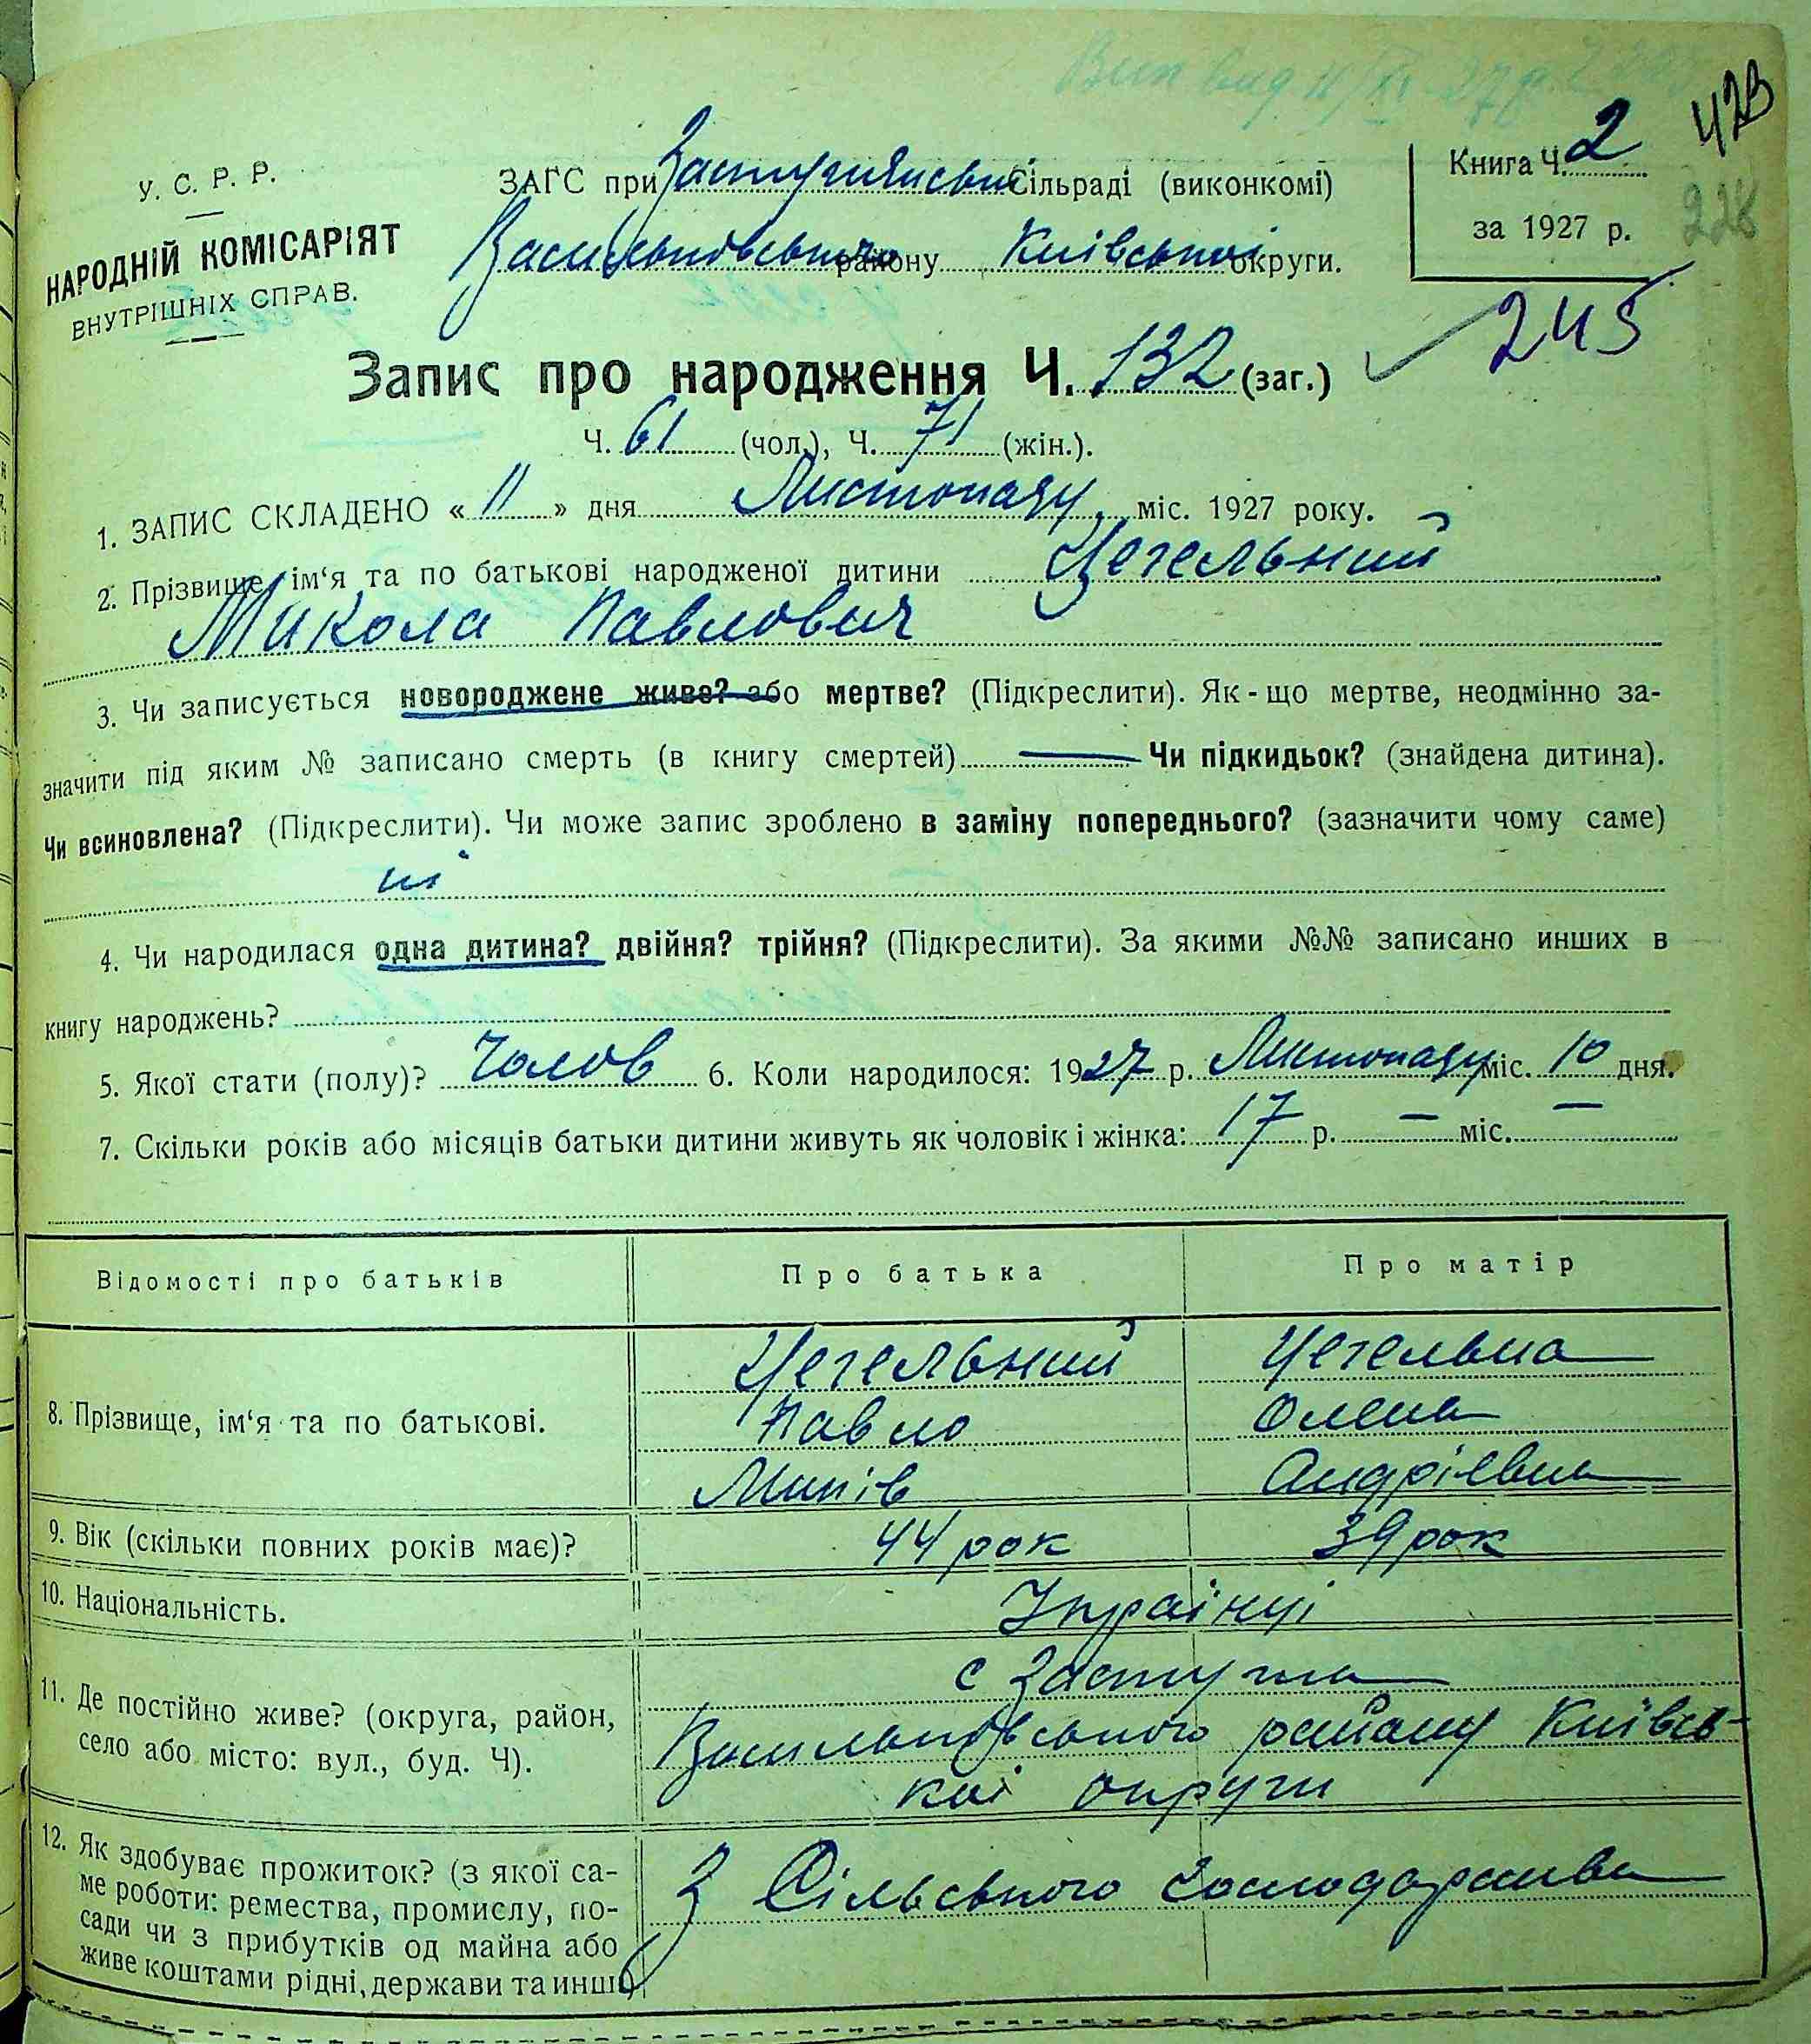 423
У. С. Р. Р.
НАРОДНІЙ КОМІСАРІЯТ
ВНУТРІШНІХ СПРАВ.
ЗАГС при Застугнянській Сільраді (виконкомі)
Васильківського району Київської округи.
Книга Ч. 2
за 1927 р.
228
245
Запис про народження Ч. 132 (заг.)
Ч. 61 (чол.), Ч. 71 (жін.).
1. ЗАПИС СКЛАДЕНО « 11 » дня Листопаду міс. 1927 року.
2. Прізвище, ім‘я та по батькові народженої дитини Цегельний
Микола Павлович
3. Чи записується новороджене живе? або мертве? (Підкреслити). Як-що мертве, неодмінно за-
значити під яким № записано смерть (в книгу смертей) — Чи підкидьок? (знайдена дитина).
Чи всиновлена? (Підкреслити). Чи може запис зроблено в заміну попереднього? (зазначити чому саме)
ні
4. Чи народилася одна дитина? двійня? трійня? (Підкреслити). За якими №№ записано инших в
книгу народжень?
5. Якої стати (полу)? Чолов 6. Коли народилося: 1927 р. Листопаду міс. 10 дня.
7. Скільки років або місяців батьки дитини живуть як чоловік і жінка: 17 р. — міс. —
Відомості про батьків Про батька Про матір
8. Прізвище, ім‘я та по батькові.
Цегельний Цегельна
Павло Олена
Андріевна
9. Вік (скільки повних років має)? 44 рок 39 рок
10. Національність. Українці
11. Де постійно живе? (округа, район,
село або місто: вул., буд. Ч).
с Застугна
Васильківського району Київсь-
кої округи
12. Як здобуває прожиток? (з якої са-
ме роботи: ремества, промислу, по-
сади чи з прибутків од майна або
живе коштами рідні, держави та инш.)
З Сільського господарства